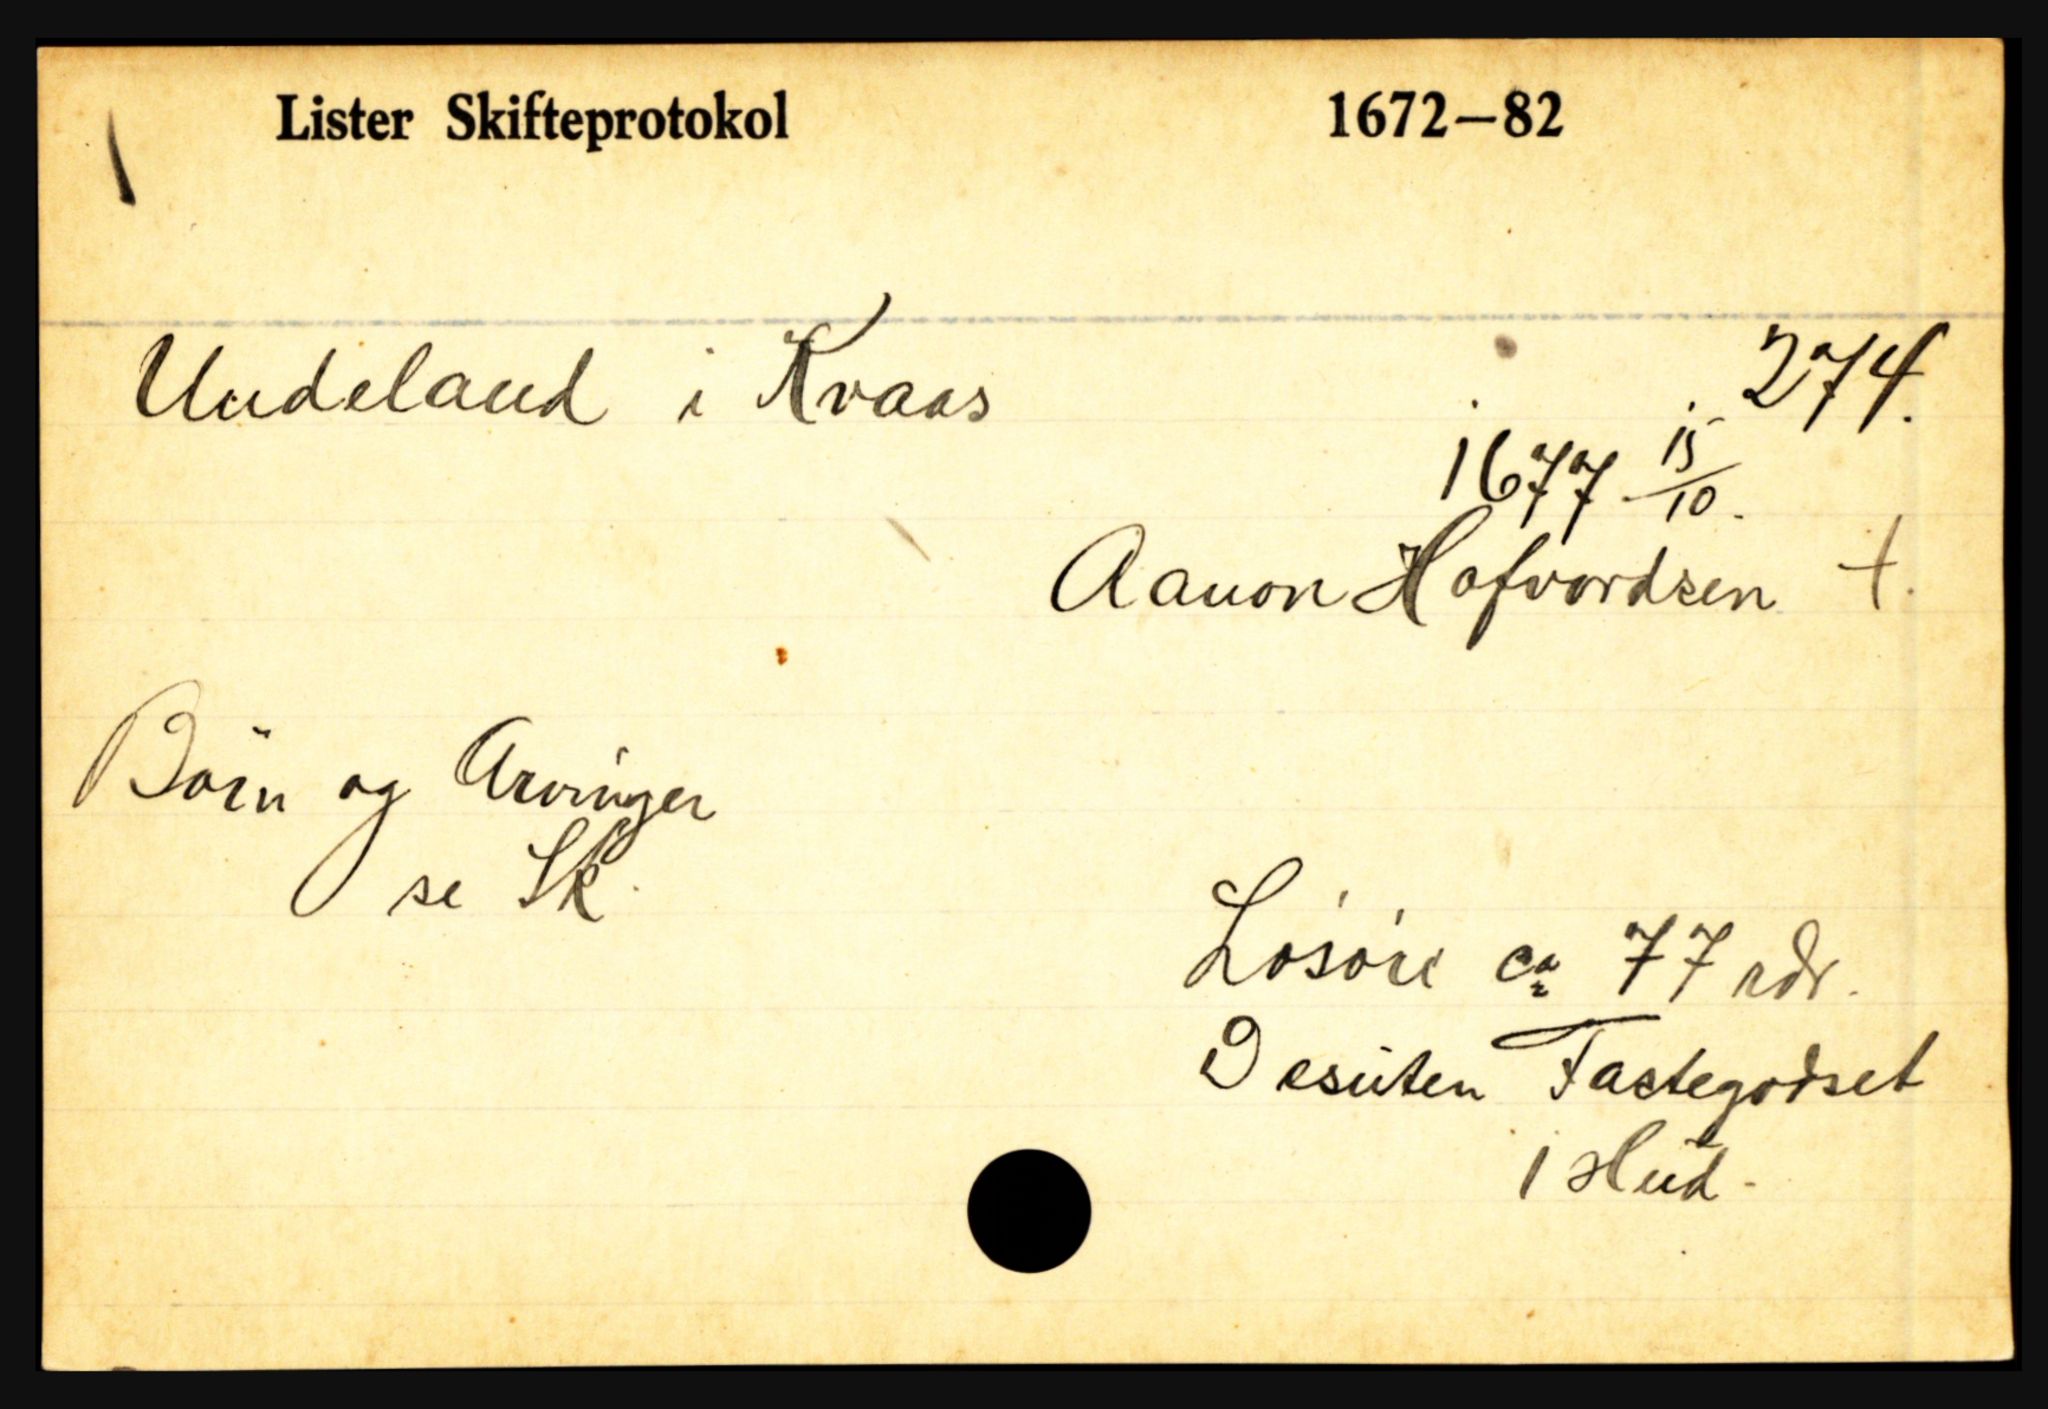 Lister Skifteprotokol 1672—82
Undeland i Kvaas 274.
1677 15/10.
Aanon Hofvordsen †.
Börn og Arvinger
se Sk.
Lösöre ca 77 rdr.
Desuten Fastegodset
1 Hud.